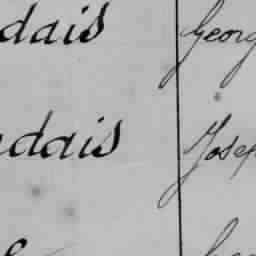 dais Georg
dais Josep